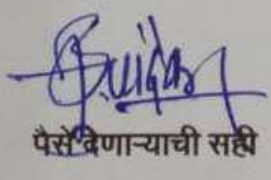 पैसे देणाऱ्याची सही